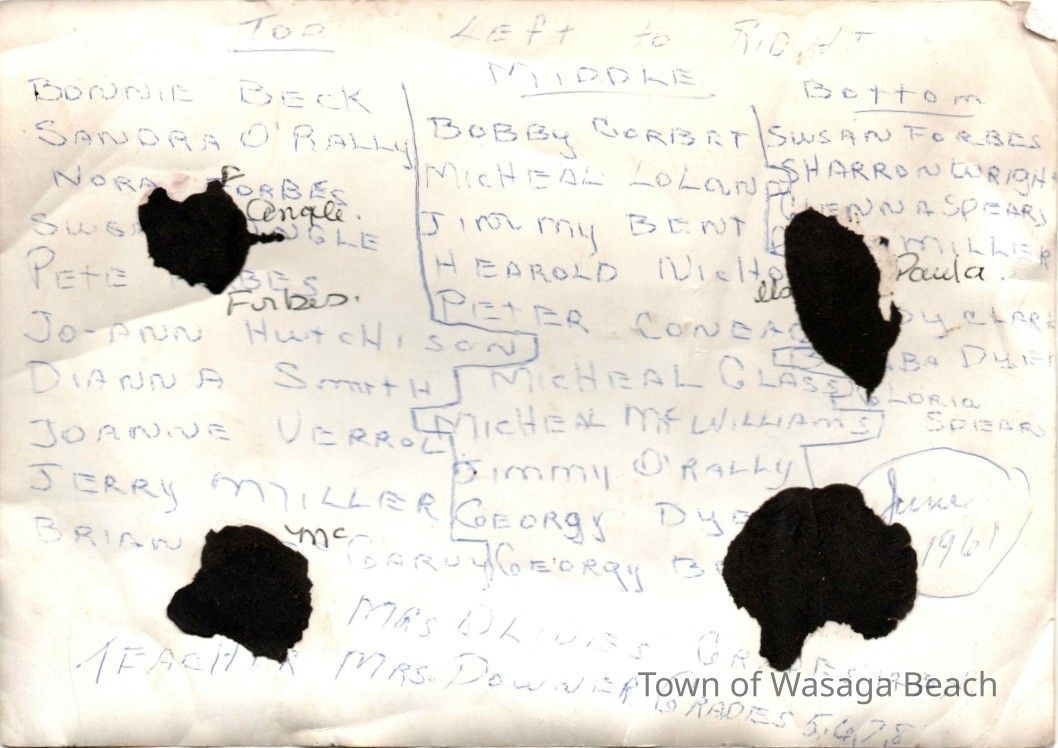 TOP LEFT to RIGHT
MIDDLE
Bottom
BONNIE BECK
SANDRA O'RALLY
NORA FORBES
Cengle.
PETE
Forbes.
JO-ANN HUTCHISON
DIANNA Smith
JOANNE VERROL
JERRY MILLER
BRIAN Mc GARVY
BOBBY CORBET
MICHEAL LOLAND
JIMMY BENT
HEAROLD
PETER
MICHEAL GLASS
MICHEAL McWILLIAMS
JIMMY O'RALLY
GEORGY
GEORGY
SUSAN FORBES
SHARRON WRIGH
GLENNA SPEARS
MILLER
Paula.
DYER
GLORIA
SPEARS
June
1961
MRS
TEACHER MRS. DOWNER GRADES 5,6,7,8
Town of Wasaga Beach